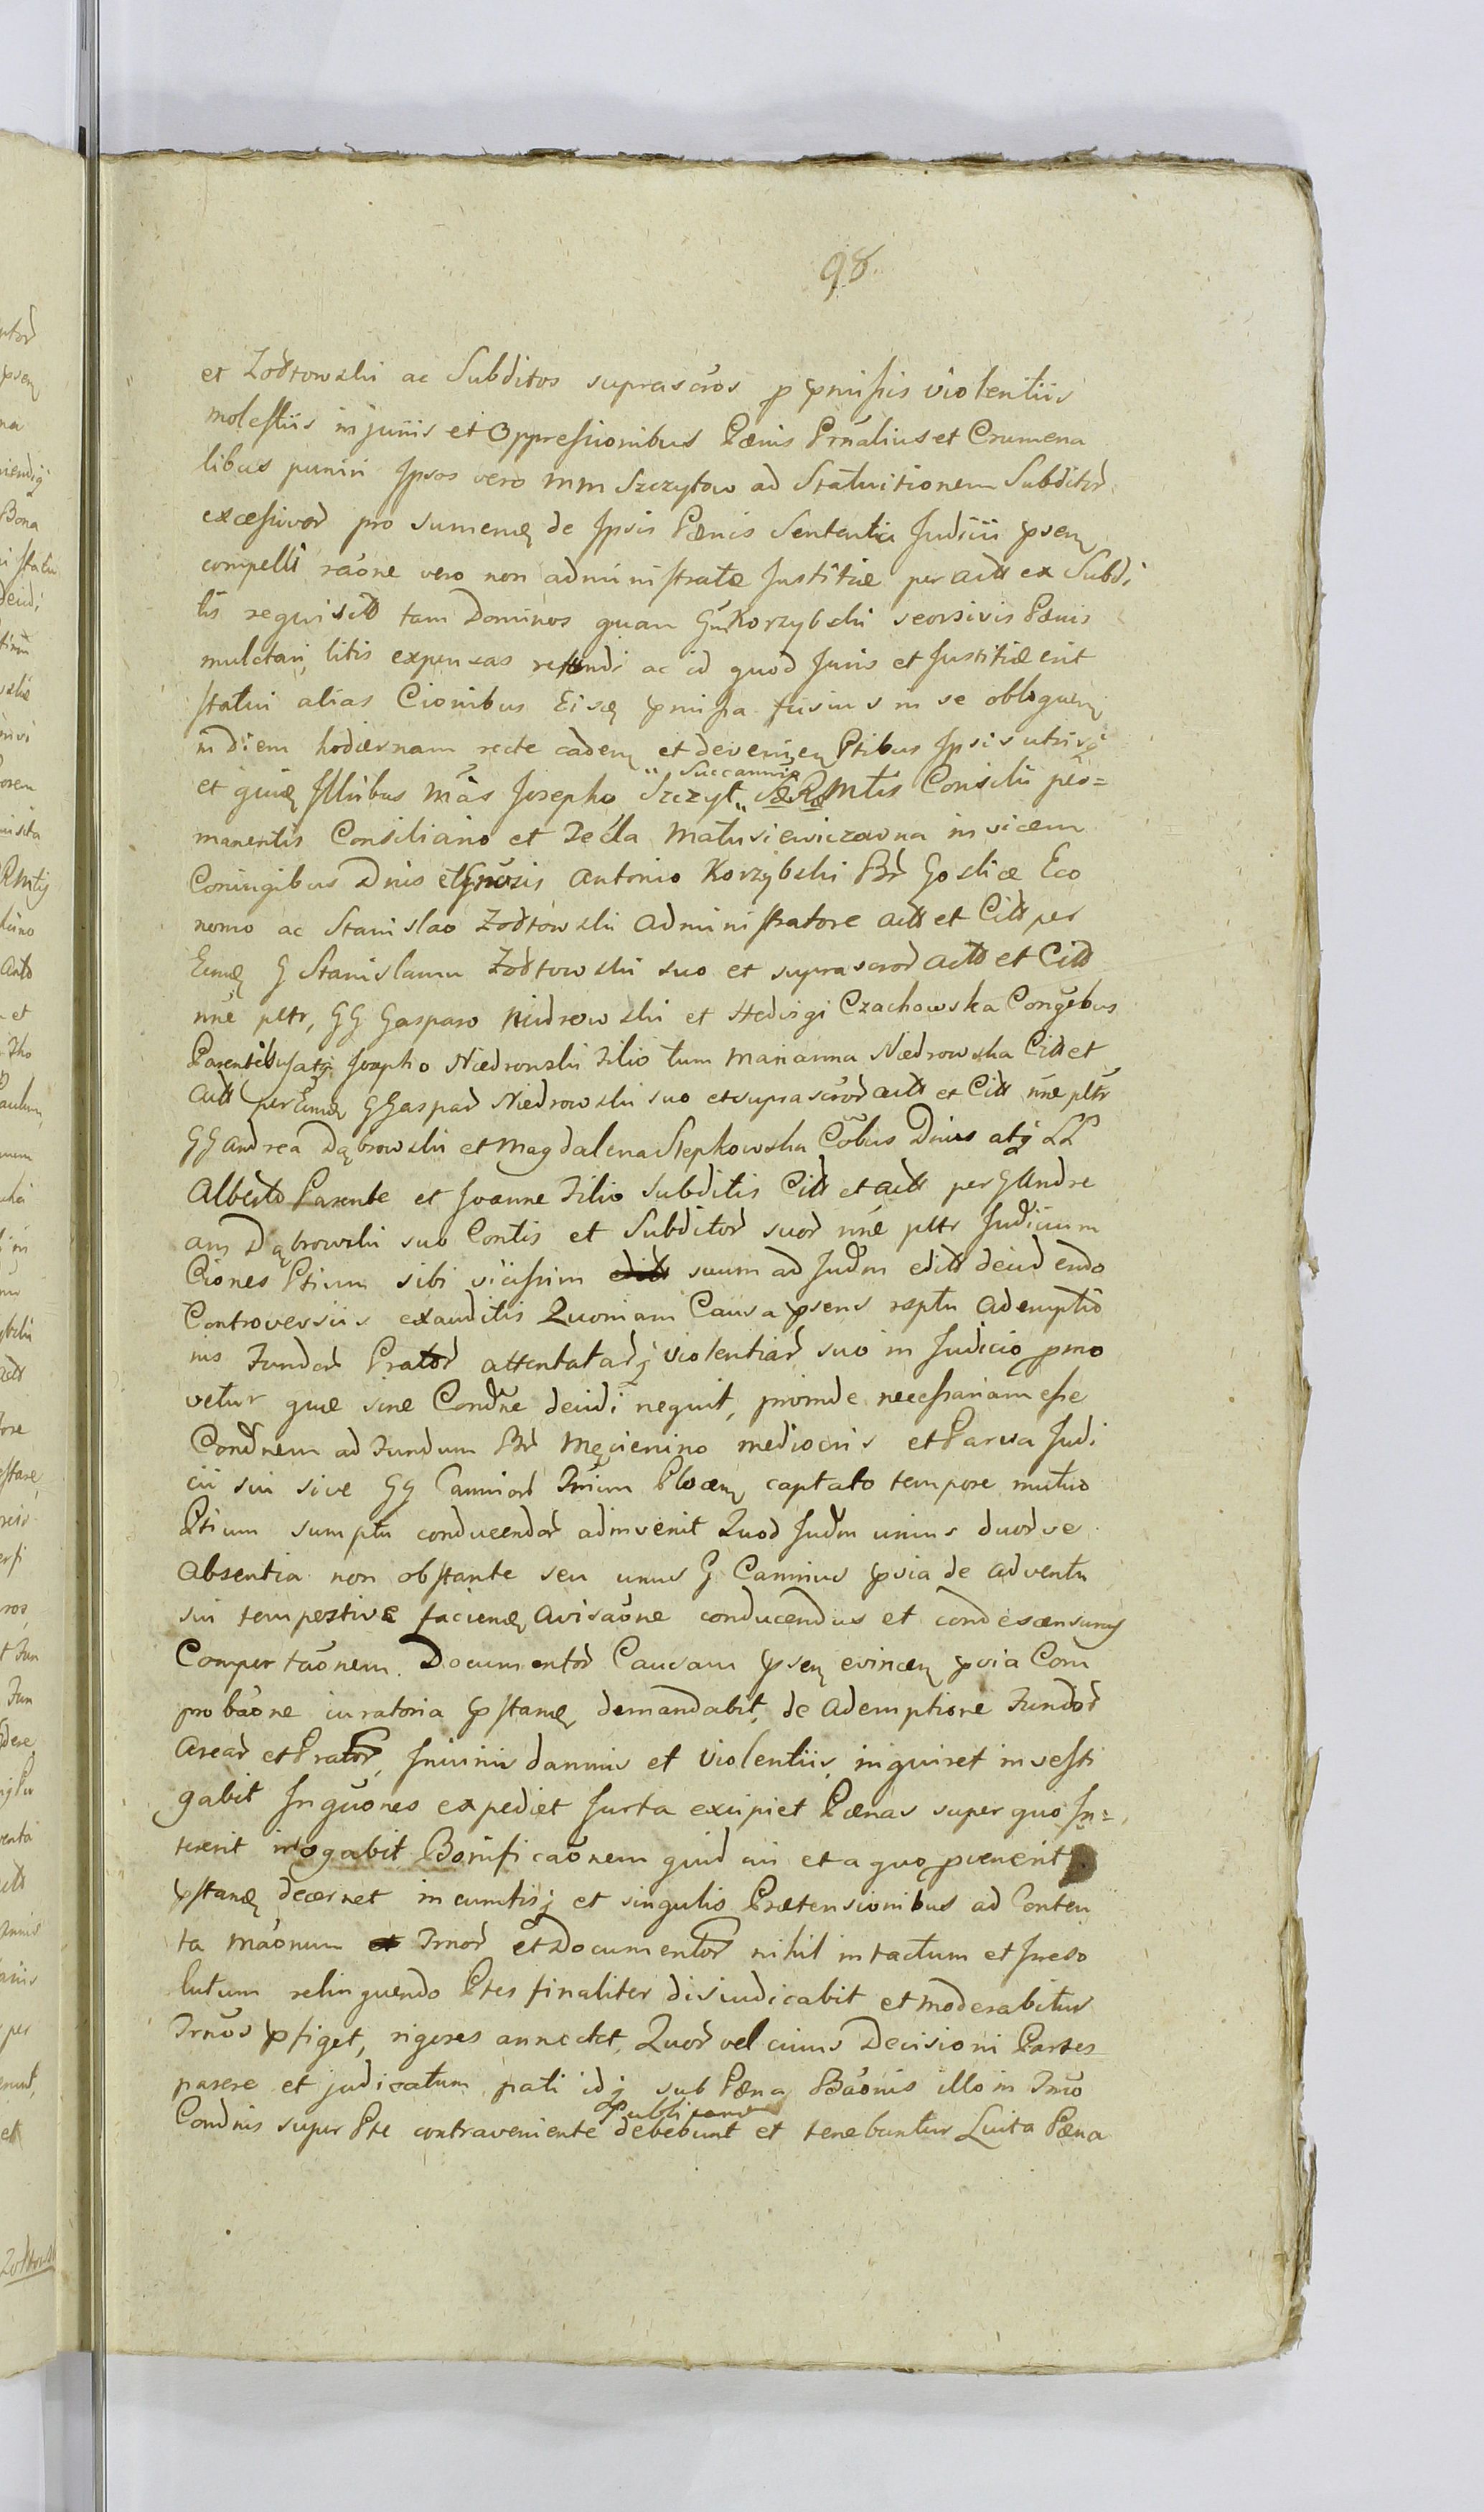 98.
et Zołtowski ac Subditos suprascros p pmissis violentiis
molestiis injuriis et Oppressionibus Pænis Prnalius et Crumena
libus puniri Ipsos vero mm Szczytow ad Statuitionem Subditor
excessivor pro sumenę de Ipsis Pænis Sententia Judicii psenę
compelli raone vero non administratæ Justitiæ per actt ex Subdi
tis requisitt tam Dominos quam Gn Korzybski seorsivis Pænis
mulctari, litis expensas refundi ac id quod Juris et Justitiæ erit
statui alias Cionibus Eisę pmissa fusius in se obloquenę
in diem hodiernam recte cadenę et devenienę Ptibus Ipsis utrisq
et quię Illribus Mas Josepho Szczyt Succamnio SæRæMtis Consilii per=
manentis Consiliario et Tecla Matusiewiczowna invicem
Coniugibus Dnis et Gnosis Antonio Korzybski Br Goslicæ Eco
nomo ac Stanislao Zołtowski Administratore actt et Citt per
Eumę G Stanislaum Zołtowski suo et suprascror actt et Citt
nne pltr, GG Gasparo Niedrowski et Hedvigi Czachowska Congebus
Parentibus atq Josepho Niedrowski Filio tum Marianna Niedrowska Citt et
actt per Eumę G Gaspar Niedrowski suo et suprascror actt et Citt nne pltr
GG Andrea Dąbrowski et Magdalena Stepkowska Cobus Dnis atq LL
Alberto Parente et Joanne Filio Subditis Citt et actt per G Andre
am Dąbrowski suo Contis et Subditor suor nne pltr Judicium
Ciones Ptium sibi vicissim suum ad Judm editt decidendo
Controversiis exauditis Quoniam Causa psens resptu Ademptio
nis Fundor Prator attentatarq violentiar suo in Judicio pmo
vetur quæ sine Condne decidi nequit, proinde necessariam esse
Condnem ad Fundum Br Męcienino mediocris et Parva Judi
cii sui sive GG Camrior Trium Plocenę captato tempore mutuo
Ptium sumptu conducendor adinvenit Quod Judm unius duorve
absentia non obstante seu unus G Camrius pvia de adventu
sui tempestive facienę avisaone conducendus et condescensurus
Comportaonem Documentor Causam psenę evincenę pvia Com
probaone iuratoria pstanę demandabit, de Ademptione Fundor
Arear et Prator, Iniuriis damnis et Violentiis, inquiret investi
gabit Inquones expediet Jurta excipiet Pænas super quo In=
tererit irrogabit Bonificaonem quid cui et a quo pvenerit
pstanę decernet in cunctisq et singulis Prætensionibus ad Conten
ta Maonum Trnor et Documentor nihil intactum et Irreso
lutum relinquendo Ptes finaliter disiudicabit et moderabitur
Trnos pfiget, rigores annectet, Quor vel cuius Decisioni Partes
parere et judicatum pati idq sub Pæna Baonis illo in Trno
Condnis super Pte contraveniente publicanę debebunt et tenebuntur Luita Pæna